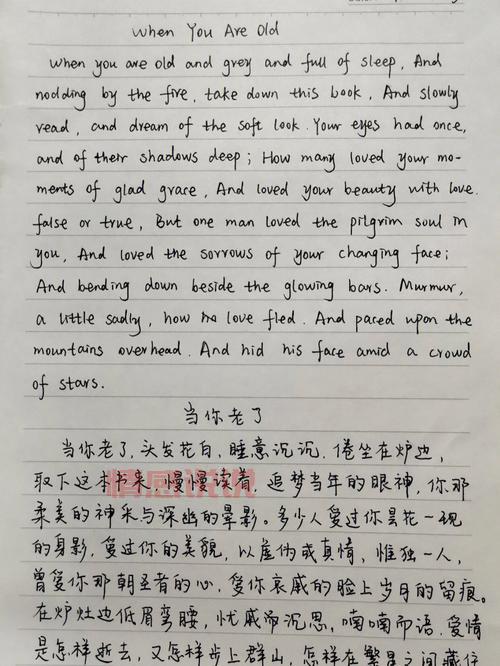 When You Are Old
When you are old and grey and full of sleep, And
nodding by the fire, take down this book, And slowly
read, and dream of the soft look. Your eyes had once,
and of their shadows deep; How many loved your mo-
ments of glad grace, And loved your beauty with love.
false or true, But one man loved the pilgrim soul in
you, And loved the sorrows of your changing face;
And bending down beside the glowing bars. Murmur,
a little sadly, how love fled. And paced upon the
mountains overhead. And hid his face amid a crowd
of stars.
当你老了
当你老了,头发花白,睡意沉沉,倦坐在炉边,
取下这本书来,慢慢读着,追梦当年的眼神,你那
柔美的神采与深幽的晕影。多少人爱过你昙花一现
的身影,爱过你的美貌,以虚伪或真情,惟独一人,
曾爱你那朝圣者的心,爱你哀戚的脸上岁月的留痕。
在炉灶边低眉弯腰,忧戚而沉思,喃喃而语,爱情
是怎样逝去,又怎样步上群山,怎样在繁星之间藏住
情感说说